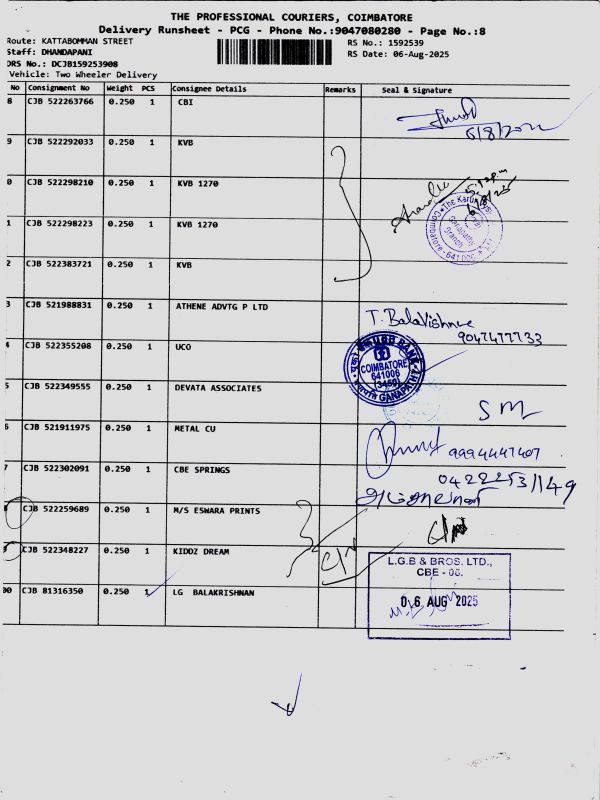 THE PROFESSIONAL COURIERS, COIMBATORE
Delivery Runsheet - PCG - Phone No.:9047080280 - Page No.:8
Route: KATTABOMMAN STREET
RS No.: 1592539
Staff: DHANDAPANI
RS Date: 06-Aug-2025
DRS No.: DCJB159253908
Vehicle: Two Wheeler Delivery
No Consignment No Weight PCS Consignee Details Remarks Seal & Signature
8 CJB 522263766 0.250 1 CBI
9 CJB 522292033 0.250 1 KVB
0 CJB 522298210 0.250 1 KVB 1270
1 CJB 522298223 0.250 1 KVB 1270
Ganapathy
Branch
Coimbatore - 641 006
2 CJB 522383721 0.250 1 KVB
3 CJB 521988831 0.250 1 ATHENE ADVTG P LTD
9047477733
4 CJB 522355208 0.250 1 UCO
COIMBATORE
641006
(3450)
GANAPATHY
5 CJB 522349555 0.250 1 DEVATA ASSOCIATES
SM
6 CJB 521911975 0.250 1 METAL CU
9994447407
7 CJB 522302091 0.250 1 CBE SPRINGS
8 CJB 522259689 0.250 1 M/S ESWARA PRINTS
9 CJB 522348227 0.250 1 KIDDZ DREAM
L.G.B & BROS. LTD.,
CBE - 06.
00 CJB 81316350 0.250 1 LG BALAKRISHNAN
06 AUG 2025